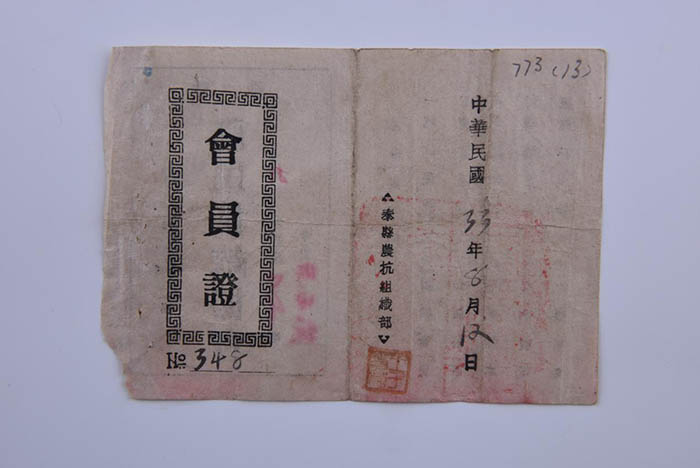 773(13)
中華民國33年8月12日
泰縣農抗組織部
會員證
348